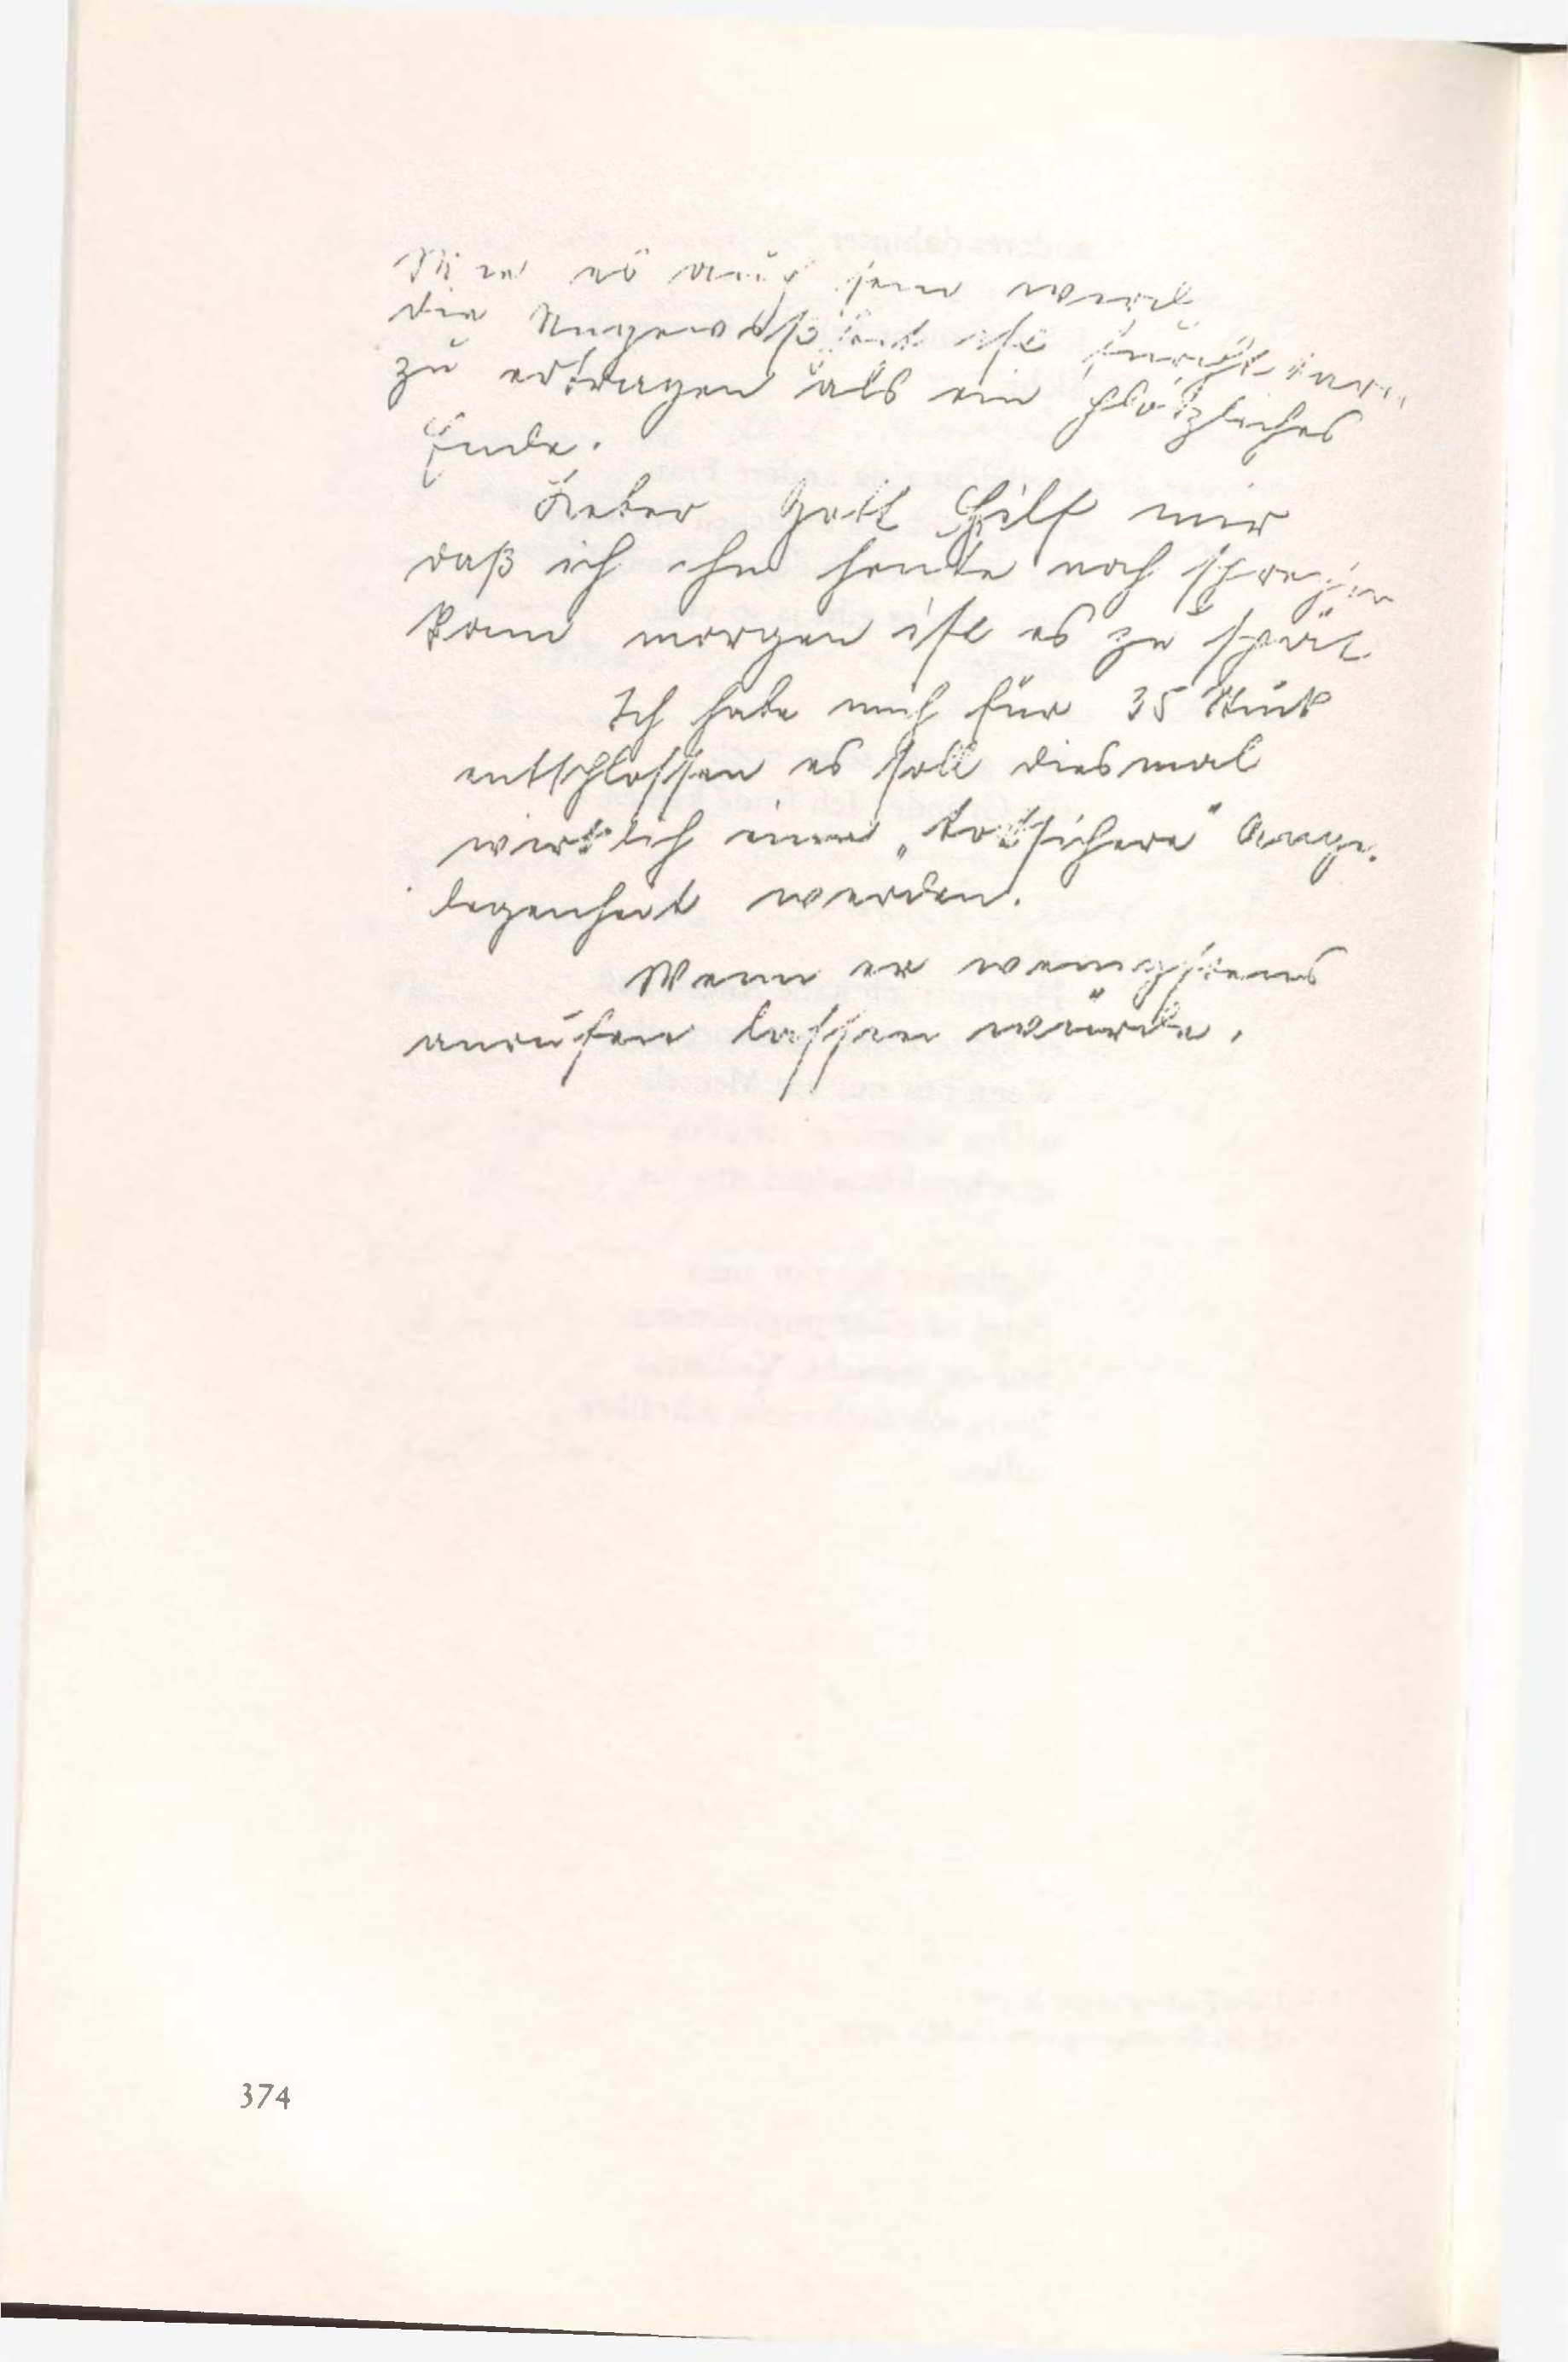 es auch sein wird
die Ungewißheit ist furchtbarer
zu ertragen als ein plötzliches
Ende.
Lieber Gott Hilf mir
daß ich ihn heute noch sprechen
kann morgen ist es zu spät
Ich habe mich für 35 Stück
entschlossen es soll diesmal
wirklich eine „totsichere" Ange-
legenheit werden.
Wenn er wenigstens
anrufen lassen würde.
374